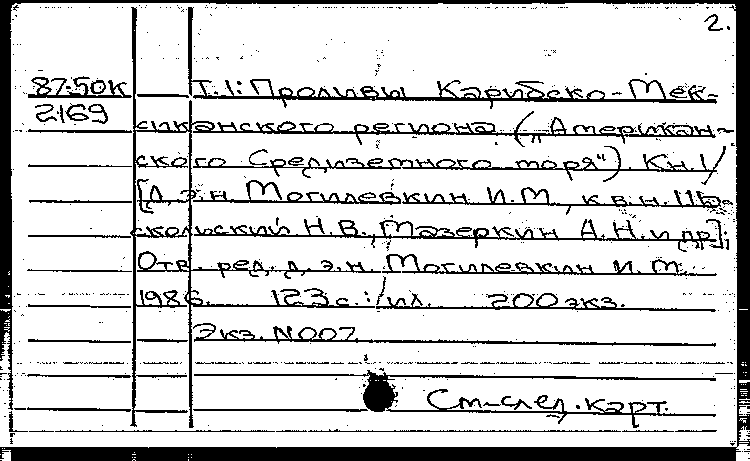 2.
87-50к Т.1: Проливы Карибско-Мек-
2169
сиканского региона („Американ-
ского Средиземного моря“) Кн.1/
[д.э.н. Могилевкин И.М., к.в.н.
скольский Н.В., Мазеркин А.Н. и др.];
Отв. ред. д.э.н. Могилевкин И.М.
1986. 123с.:/ил. 200 экз.
Экз. N007.
См-след.карт.